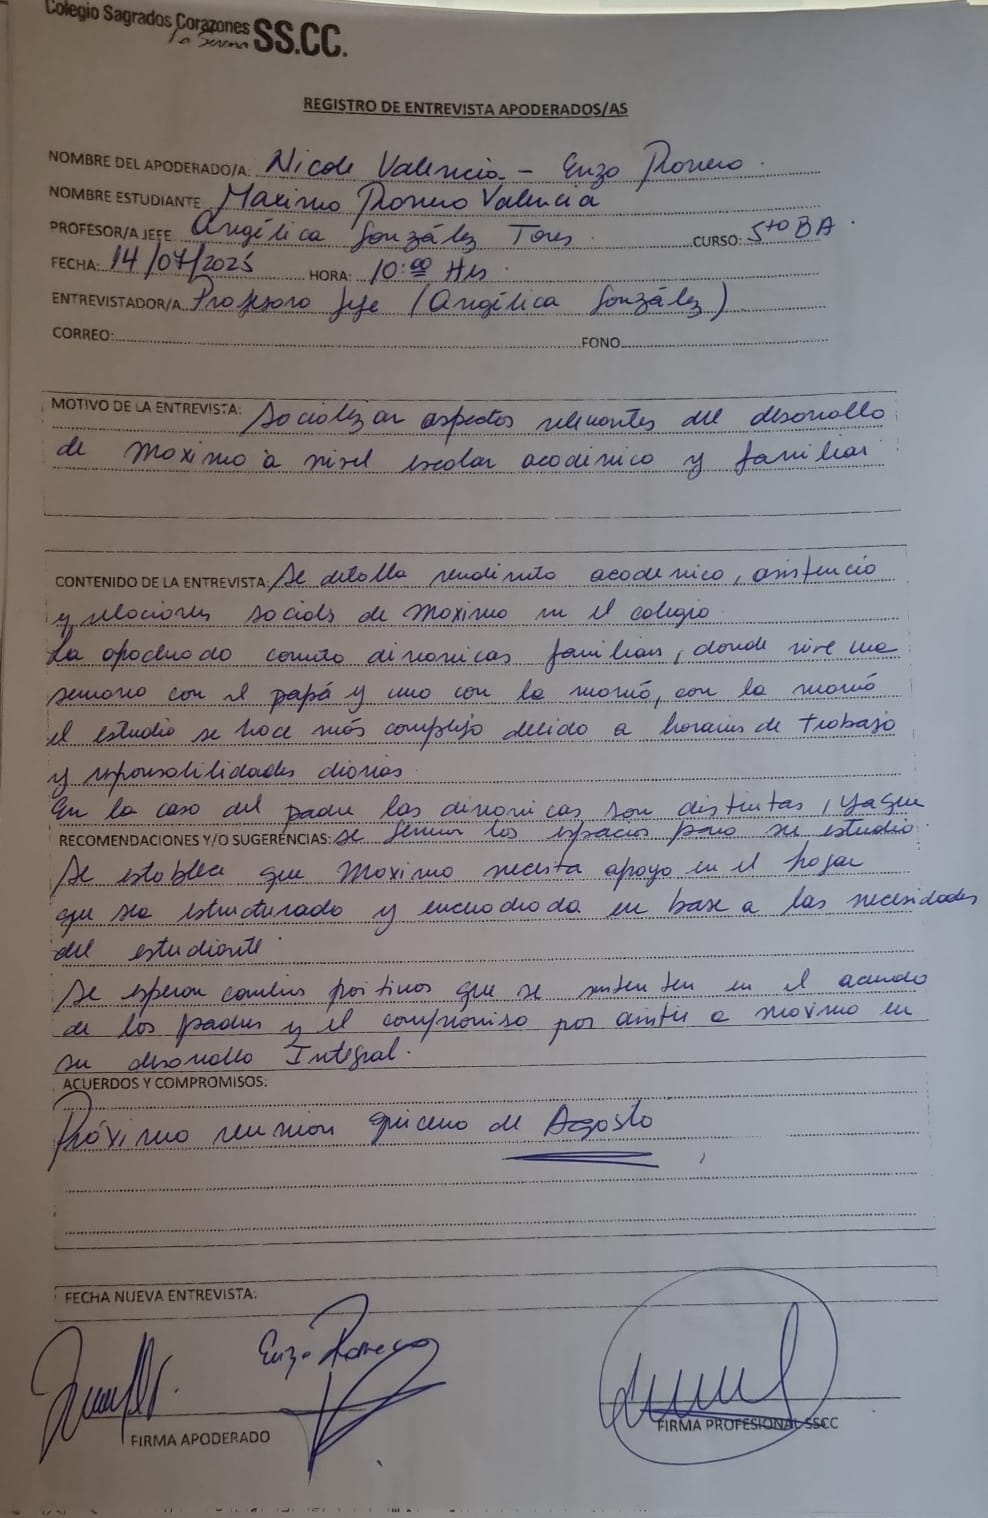 Colegio Sagrados Corazones
La Serena SS.CC.
REGISTRO DE ENTREVISTA APODERADOS/AS
NOMBRE DEL APODERADO/A: Nicole Valencia - Enzo Romero.
NOMBRE ESTUDIANTE Maximo Romero Valencia
PROFESOR/A JEFE Angélica González Torres. CURSO: 5to BA.
FECHA: 14/07/2025 HORA: 10:00 Hrs.
ENTREVISTADOR/A Profesora Jefe (Angélica González)
CORREO: FONO
MOTIVO DE LA ENTREVISTA: Socializar aspectos relevantes del desarrollo
de Maximo a nivel escolar academico y familiar
CONTENIDO DE LA ENTREVISTA: Se detalla rendimiento academico, asistencia
y relaciones sociales de Maximo en el colegio.
La apoderado comenta dinamicas familiares, donde vive una
semana con el papá y una con la mamá, con la mamá
el estudio se hace más complejo debido a horarios de trabajo
y responsabilidades diarias.
En la caso del padre las dinamicas son distintas, ya que
RECOMENDACIONES Y/O SUGERENCIAS: se los espacios para su estudio.
Se establece que Maximo necesita apoyo en el hogar
que sea estructurado y encuadrada en base a las necesidades
del estudiante.
Se esperan cambios positivos que se sustenten en el acuerdo
de los padres y el compromiso por asistir a maximo en
su desarrollo Integral.
ACUERDOS Y COMPROMISOS.
Próximo reunion quicena de Agosto
FECHA NUEVA ENTREVISTA:
Enzo Romero
FIRMA APODERADO
FIRMA PROFESIONAL SSCC